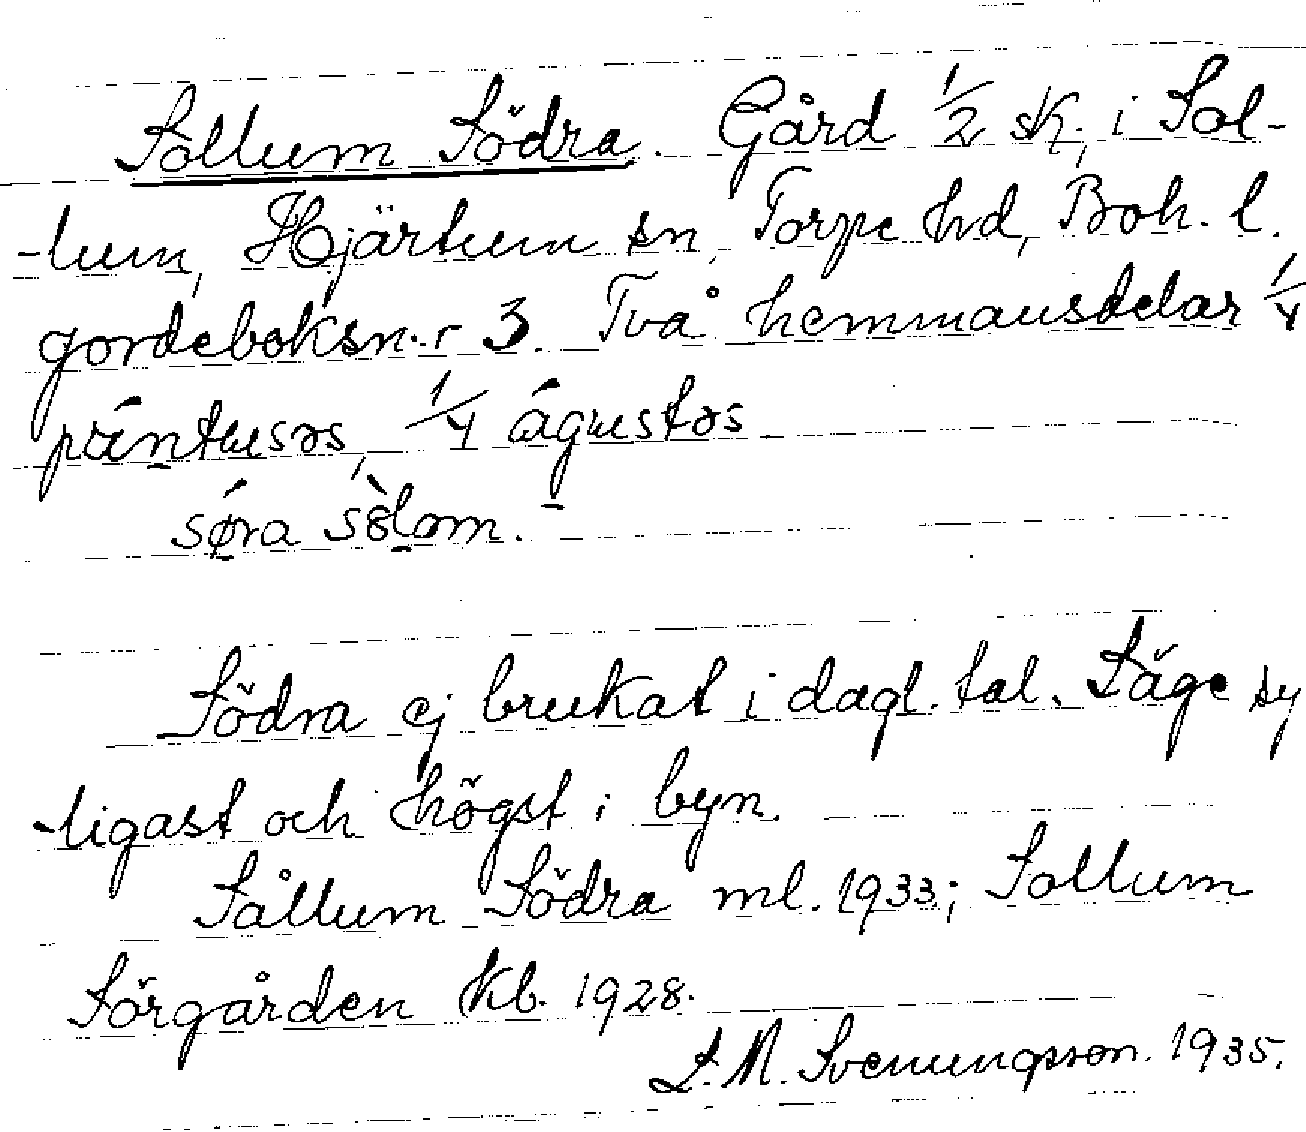 Sollum Södra. Gård 1/2 sk, i Sol-
-lum, Hjärtum sn, Torpe hd, Boh. l.
gordeboksn.r 3. Två hemmansdelar 1/4
, 1/4
Södra ej brukat i dagl. tal. Läge sy
-ligast och högst i byn.
Sållum Södra ml. 1933; Sollum
Sörgården Kb. 1928.
L.M. Svenungsson. 1935.